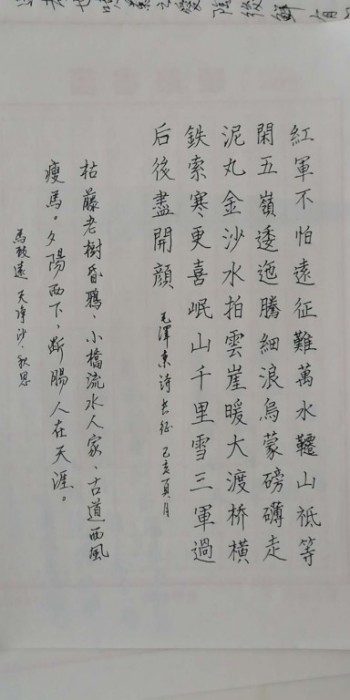 紅軍不怕遠征難萬水韆山祗等
閑五嶺逶迤騰細浪烏蒙磅礴走
泥丸金沙水拍雲崖暖大渡桥橫
鉄索寒更喜岷山千里雪三軍過
后後盡開顔
毛澤東诗长征 己亥夏月
枯藤老樹昏鴉、小橋流水人家、古道西風
瘦馬。夕陽西下,断腸人在天涯。
馬致遠 天净沙·秋思